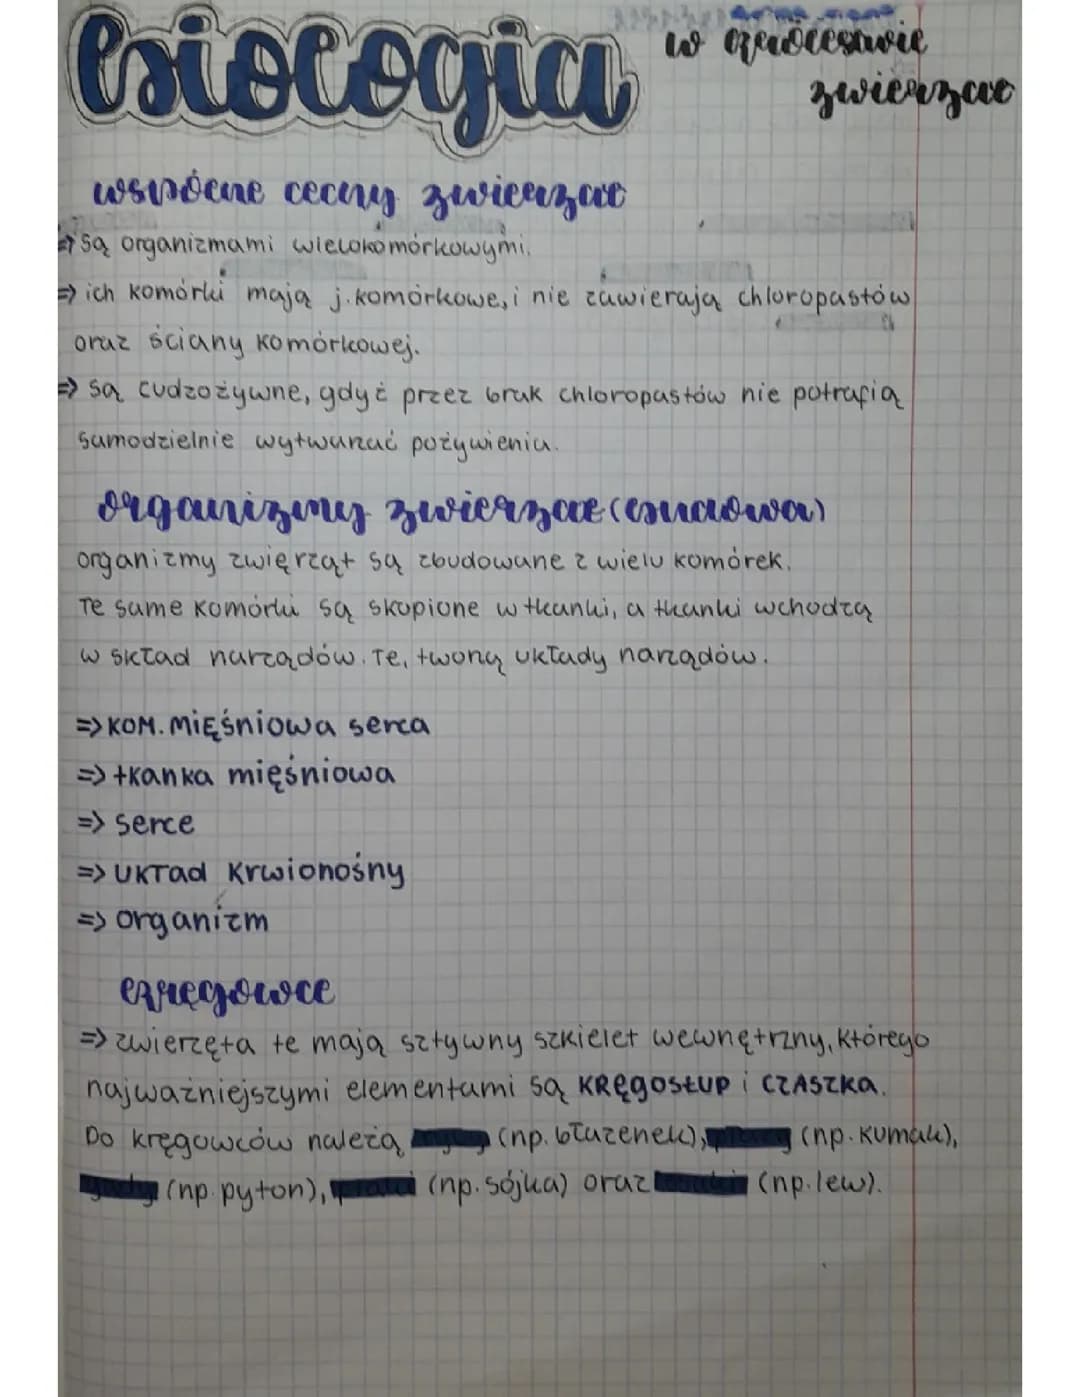 Biologia
w królestwie
zwierząt
wspólne cechy zwierząt
=> są organizmami wielokomórkowymi.
=> ich komórki mają j.komórkowe, i nie zawierają chloropastów
oraz ściany komórkowej.
=> są cudzożywne, gdyż przez brak chloropastów nie potrafią
samodzielnie wytwarzać pożywienia.
organizmy zwierząt (budowa)
organizmy zwięrząt są zbudowane z wielu komórek.
Te same komórki są skupione w tkanki, a tkanki wchodzą
w skład narządów. Te, tworzą układy narządów.
=> KOM. MIĘśniowa serca
=> tkanka mięśniowa
=> serce
=> UKŁad krwionośny
=> organizm
kręgowce
=> zwierzęta te mają sztywny szkielet wewnętrzny, którego
najważniejszymi elementami są KRĘGOSŁUP i CZASZKA.
Do kręgowców należą (np. błazenek), (np. kumak),
(np. pyton), (np. sójka) oraz (np. lew).